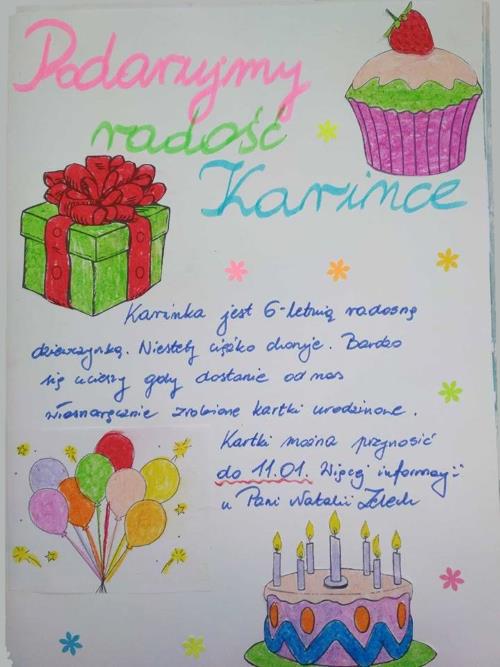 Podarzymy
radość
Karince
Karinka jest 6-letnią radosną
dziewczynką. Niestety ciężko choruje. Bardzo
się ucieszy gdy dostanie od nas
własnoręcznie zrobione kartki urodzinowe.
Kartki można przynosić
do 11.01. Więcej informacji
u Pani Natalii